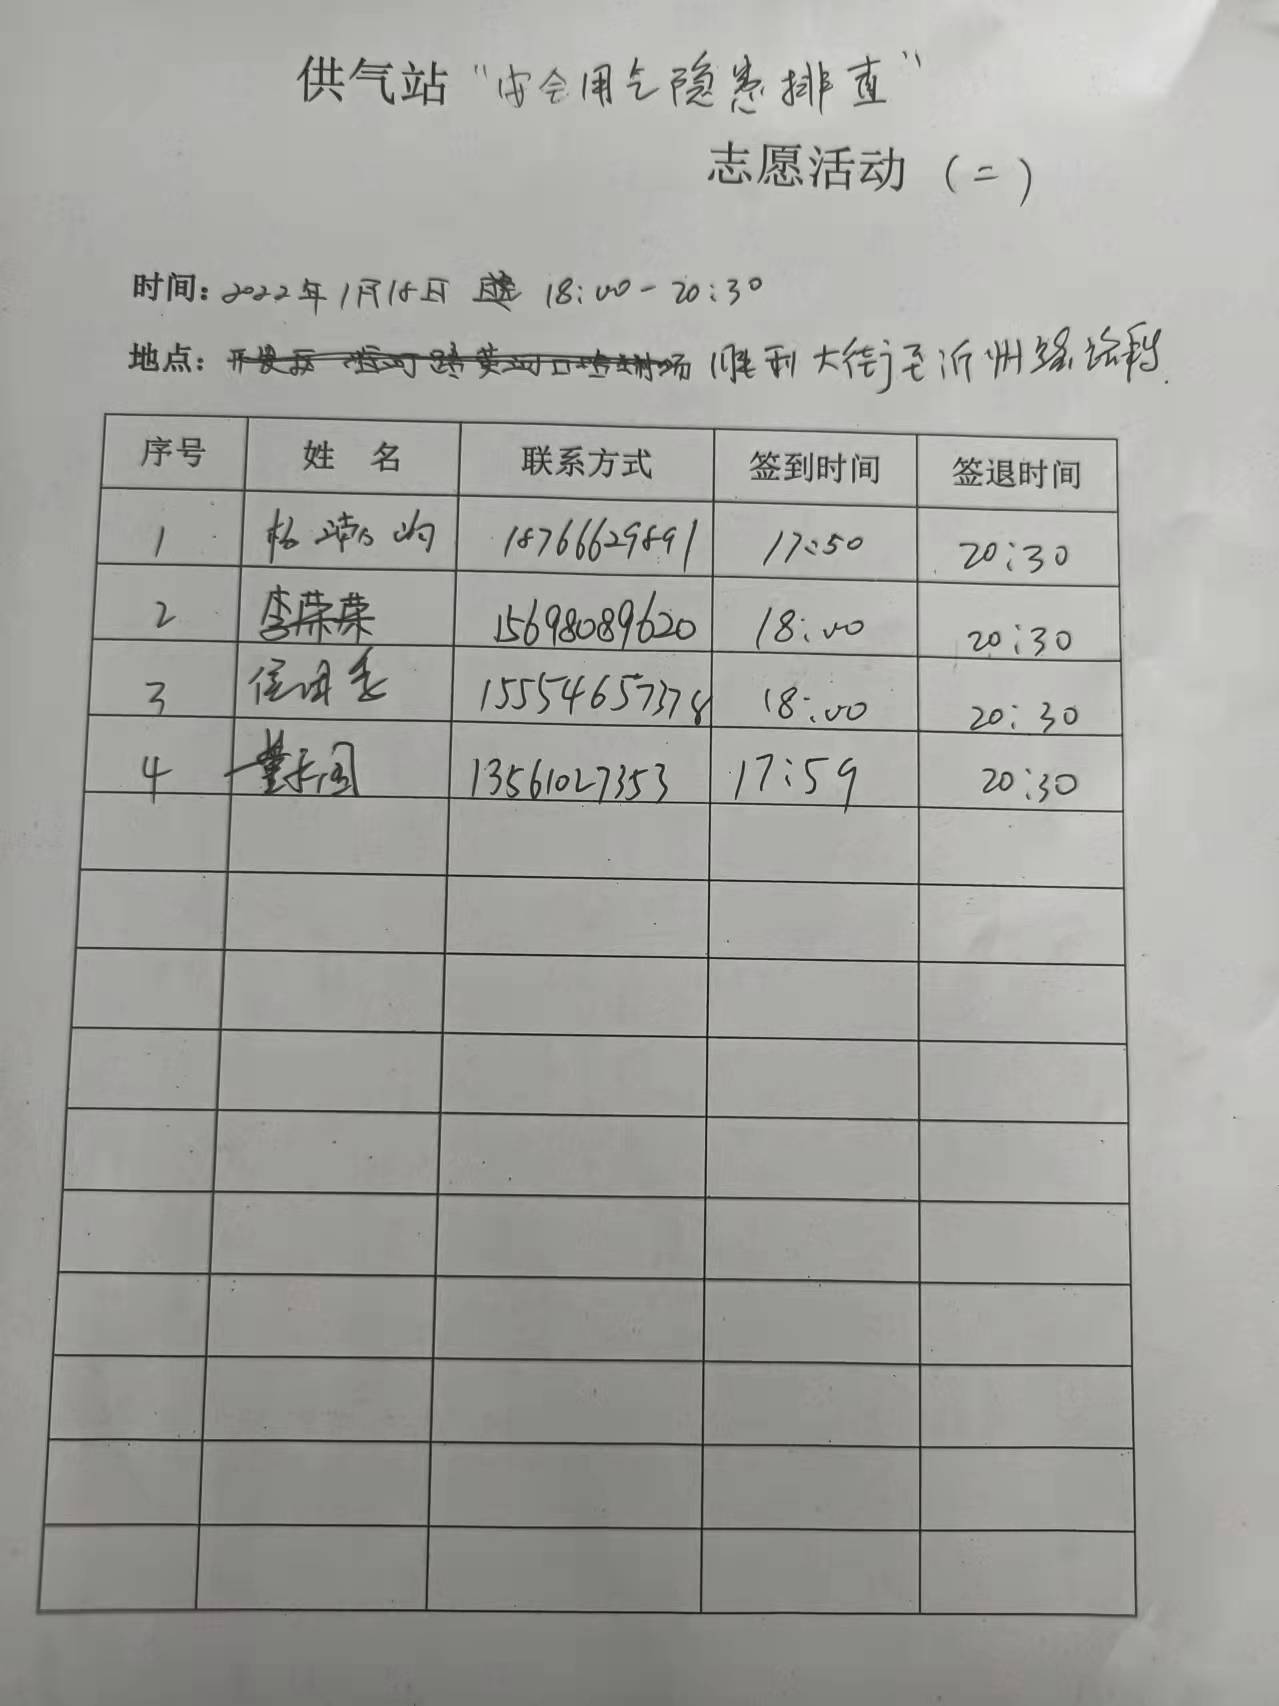 供气站“安全用气隐患排查”
志愿活动（二）
时间：2022年1月18日 18:00-20:30
地点：胜利大街至沂州路
序号 姓名 联系方式 签到时间 签退时间
1 18766629891 17:50 20:30
2 李荣荣 15698089620 18:00 20:30
3 15554657378 18:00 20:30
4 13561027353 17:59 20:30